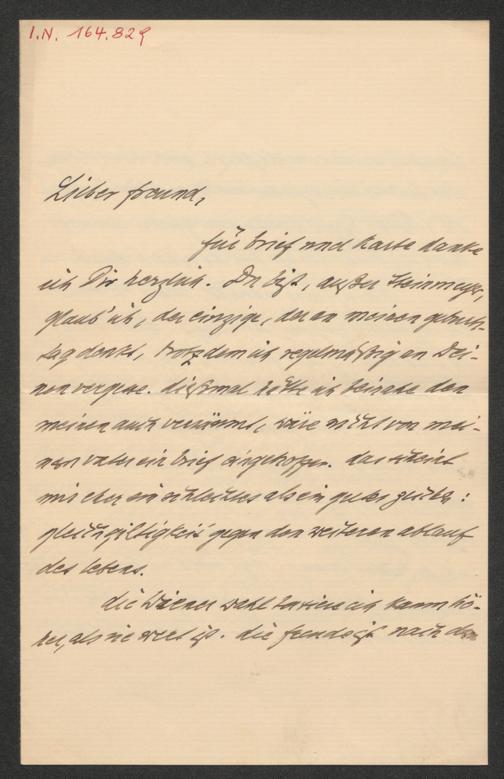 I.N. 164.829
Lieber freund,
für brief und karte danke
ich Dir herzlich. Du bist, außer Steinmeyer,
glaub' ich, der einzige, der an meinen geburts-
tag denkt, trotzdem ich regelmäßig an Dei-
nen vergesse. diesmal hätte ich beinahe den
meinen auch versäumt, wäre nicht von mei-
nem vater ein brief eingetroffen. das scheint
mir eher ein schlechtes als ein gutes zeichen:
gleichgiltigkeit gegen den weiteren ablauf
des lebens.
die Wiener wahl taxiere ich kaum hö-
her, als sie wert ist. die freude ist nach dem